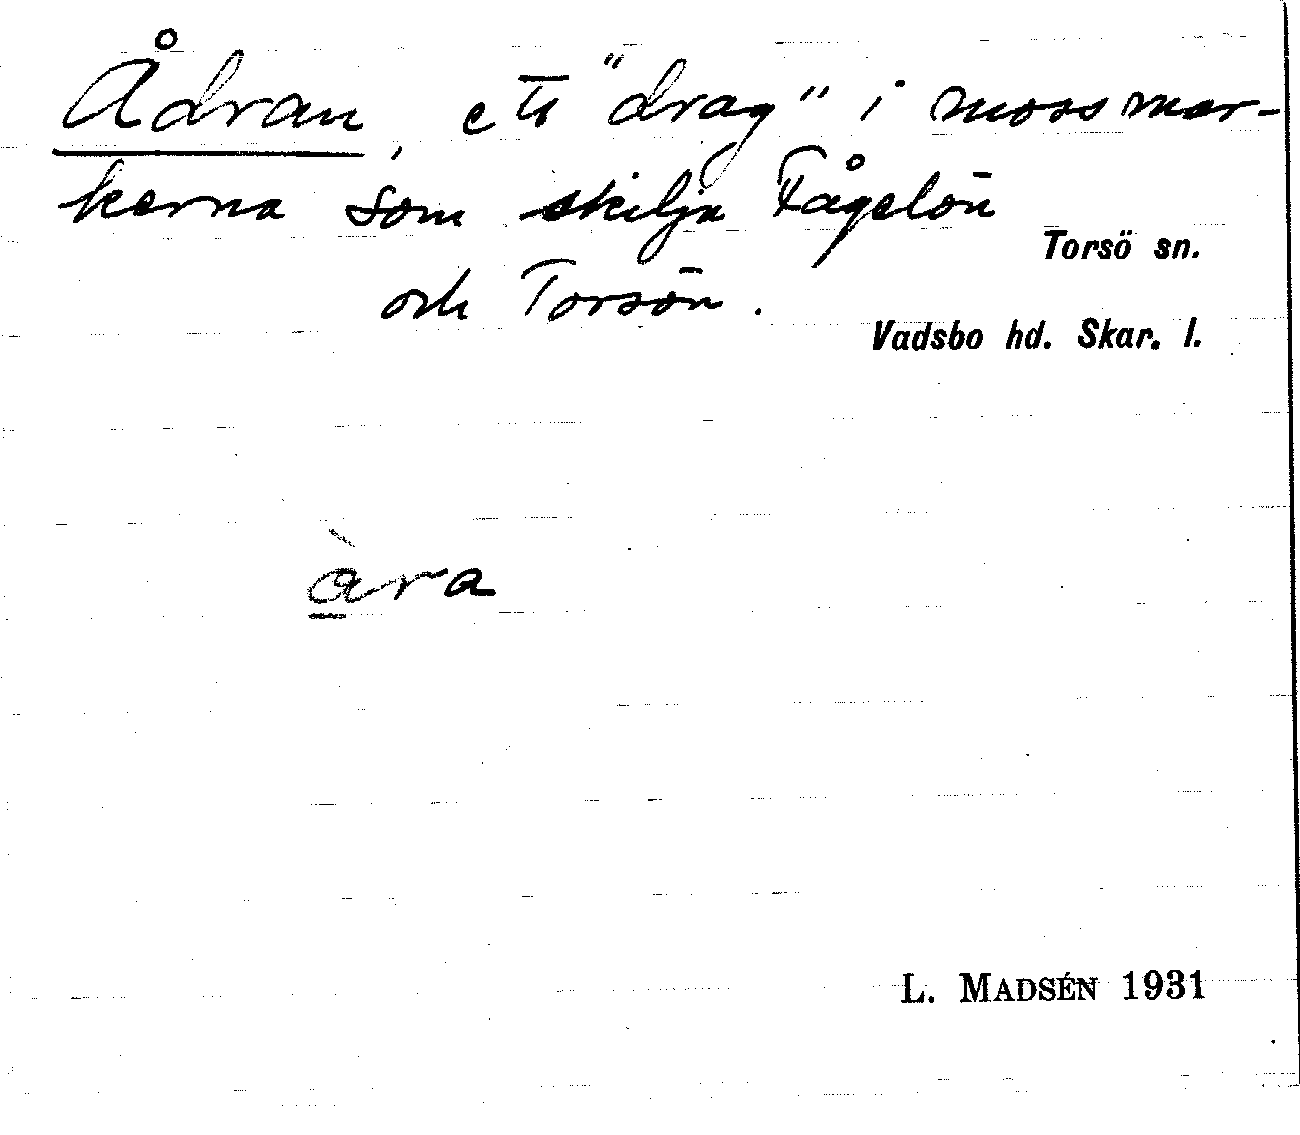 Ådran, ett "drag" i mossmar-
kerna som skilja Fågelön
Torsö sn.
och Torsön.
Vadsbo hd. Skar. l.
àra
L. MADSÉN 1931